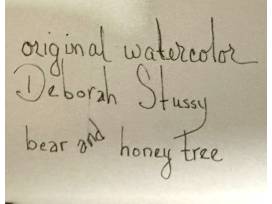 original watercolor
Deborah Stussy
bear and honey tree